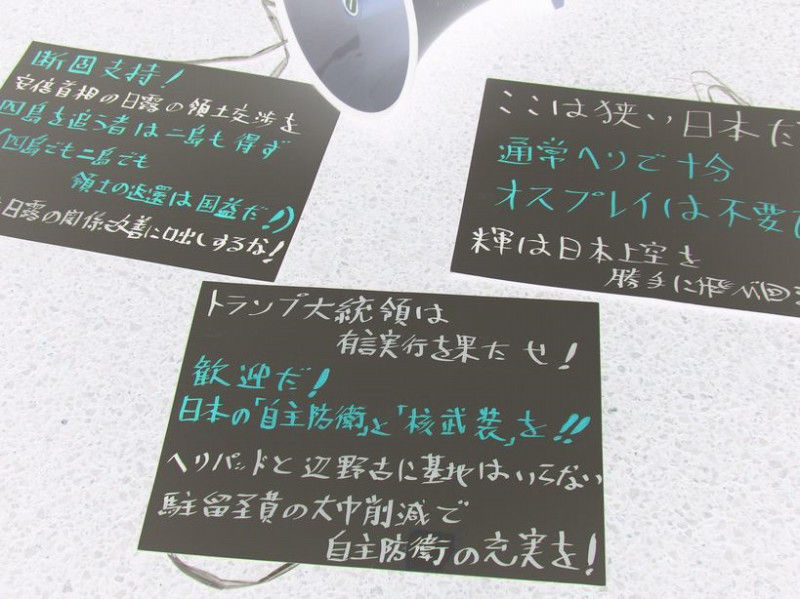 断固支持!
安倍首相の日露の領土交渉を
四島を追う者は二島も得ず
四島でも二島でも
領土の返還は国益だ!!
日露の関係改善に口出しするな!
ここは狭い日本だ
通常ヘリで十分
オスプレイは不要
は日本上空を
勝手に飛び回
トランプ大統領は
有言実行を果たせ!
歓迎だ!
日本の「自主防衛」と「核武装」を!!
ヘリパッドと辺野古に基地はいらない
駐留経費の大巾削減で
自主防衛の充実を!